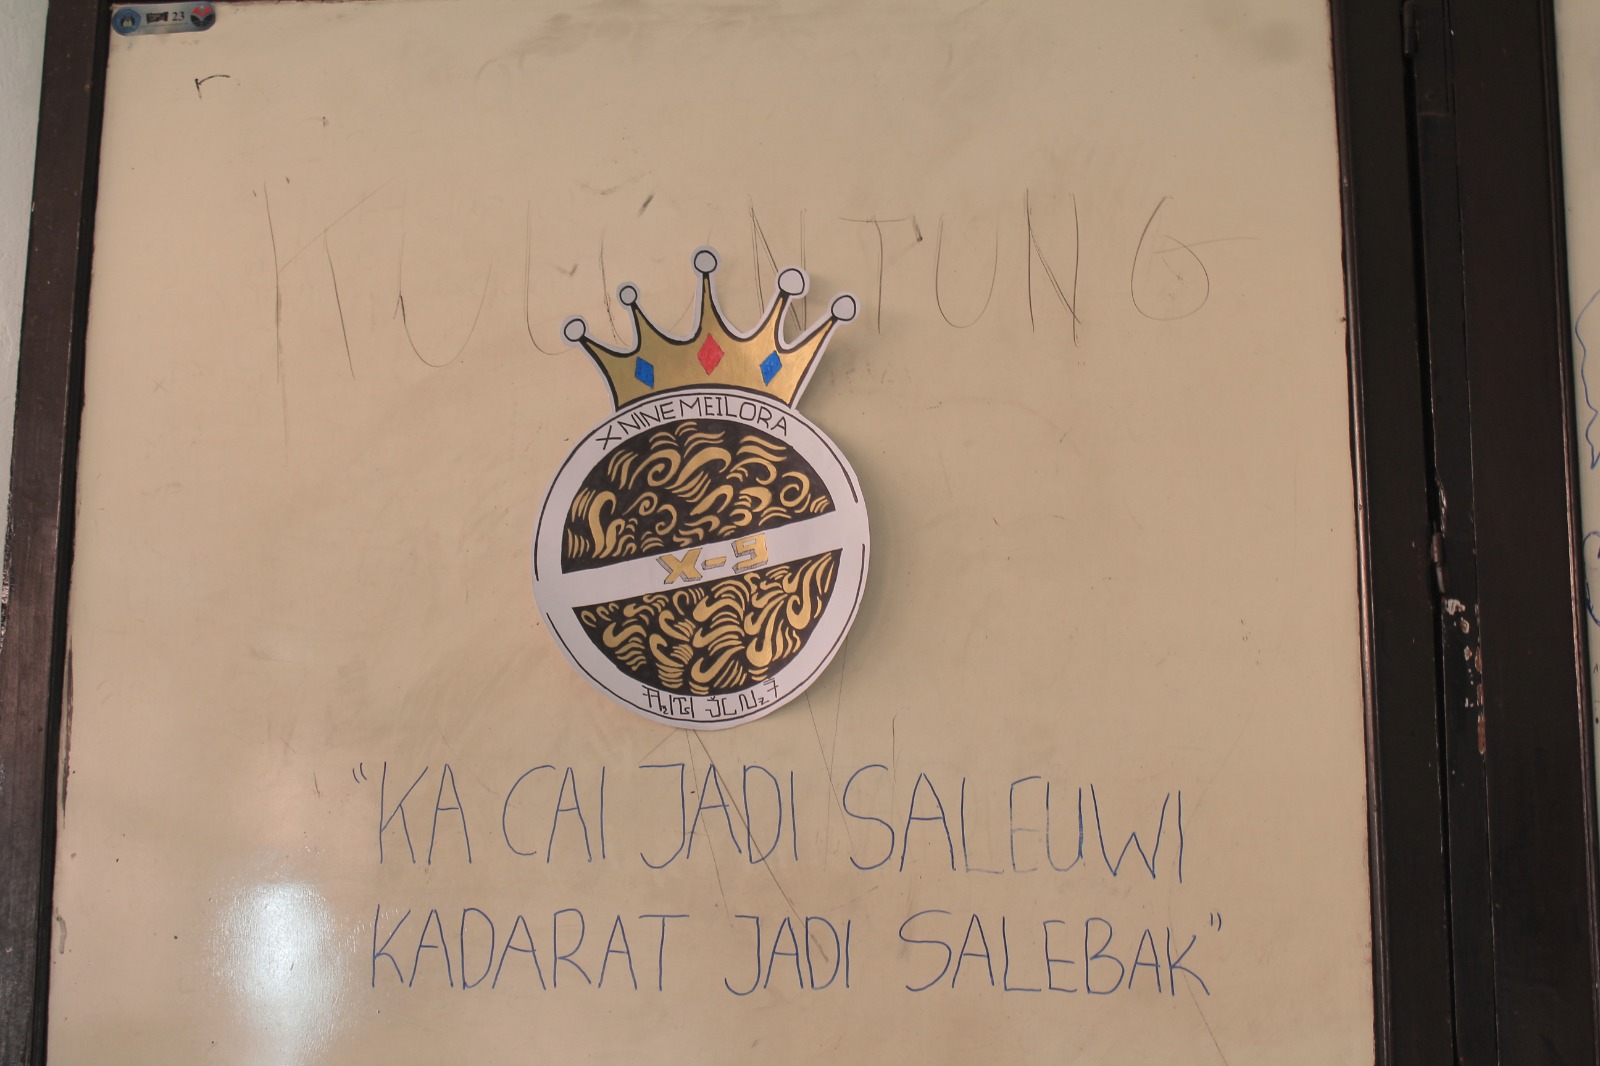 23
X NINE MEILORA
X-9
"KA CAI JADI SALEUWI
KADARAT JADI SALEBAK"